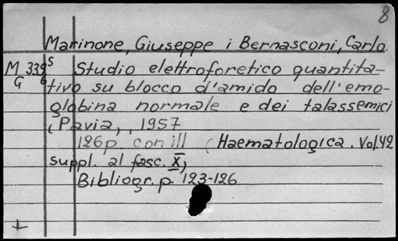 8
Marinone, Giuseppe i Bernasconi, Carlo.
M 339 S Studio elettroforetico quantita-
G 6 tivo su blocco d'amido dell'emo-
globina normale e dei talassemici
(Pavia,, 1957
126p. con ill (Haematologica. Vol.42
suppl. al fasc. X)
Bibliogr. p 123-126